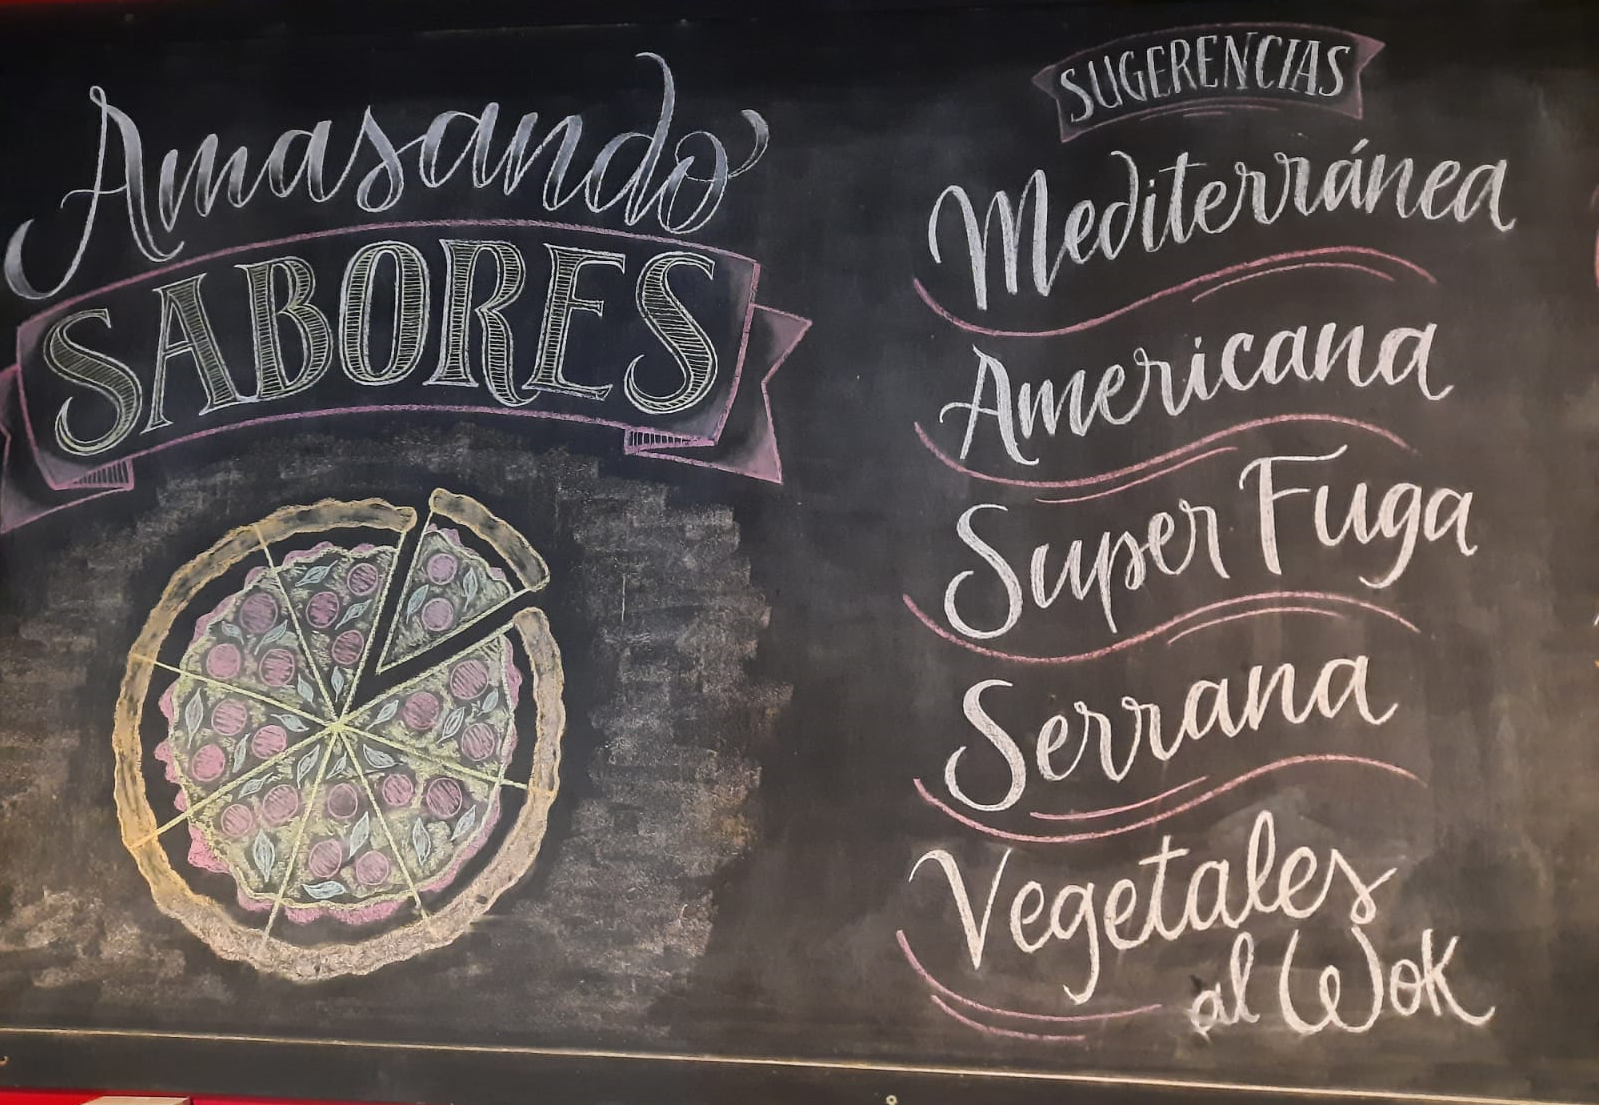 Amasando
SABORES
SUGERENCIAS
Mediterránea
Americana
Super Fuga
Serrana
Vegetales
al Wok